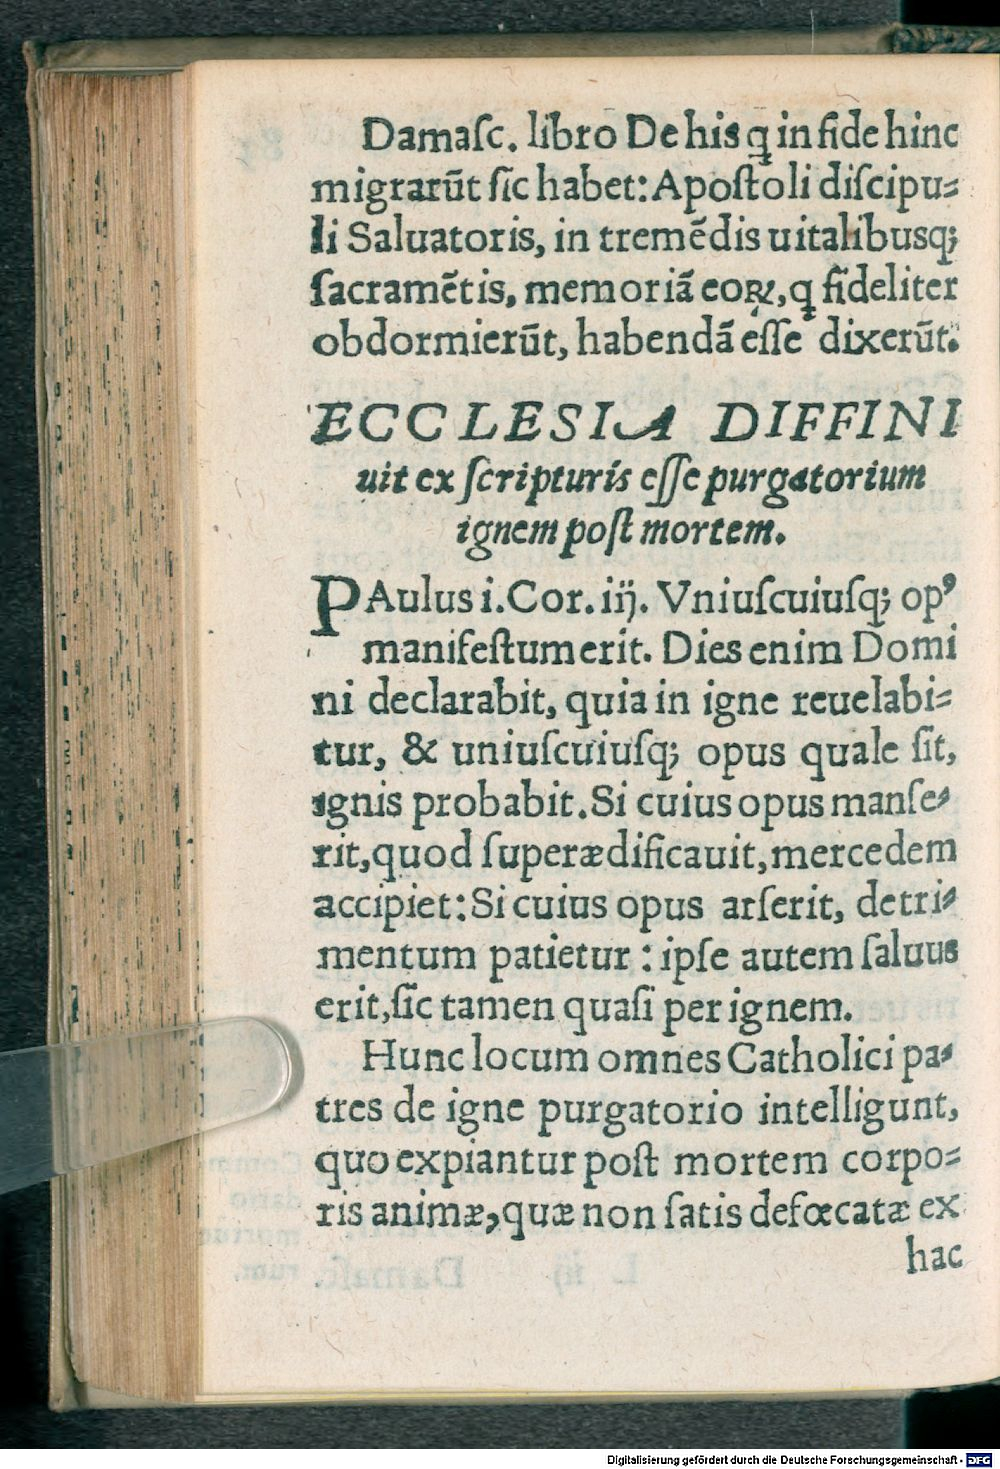 Damaſc. libro De his ꝗ in fide hinc
migrarūt ſic habet: Apoſtoli diſcipu⸗
li Saluatoris, in tremēdis uitalibusq;
ſacramētis, memoriā eoꝝ, ꝗ fideliter
obdormierūt, habendā eſſe dixerūt.
ECCLESIA DIFFINI
uit ex ſcripturis eſſe purgatorium
ignem poſt mortem.
PAulus i. Cor. iij. Vniuſcuiuſq; opꝰ
manifeſtum erit. Dies enim Domi
ni declarabit, quia in igne reuelabi⸗
tur, & uniuſcuiuſq; opus quale ſit,
ignis probabit. Si cuius opus manſe⸗
rit, quod ſuperædificauit, mercedem
accipiet: Si cuius opus arſerit, detri⸗
mentum patietur: ipſe autem ſaluus
erit, ſic tamen quaſi per ignem.
Hunc locum omnes Catholici pa⸗
tres de igne purgatorio intelligunt,
quo expiantur poſt mortem corpo⸗
ris animæ, quæ non ſatis defœcatæ ex
hac
Digitalisierung gefördert durch die Deutsche Forschungsgemeinschaft - DFG